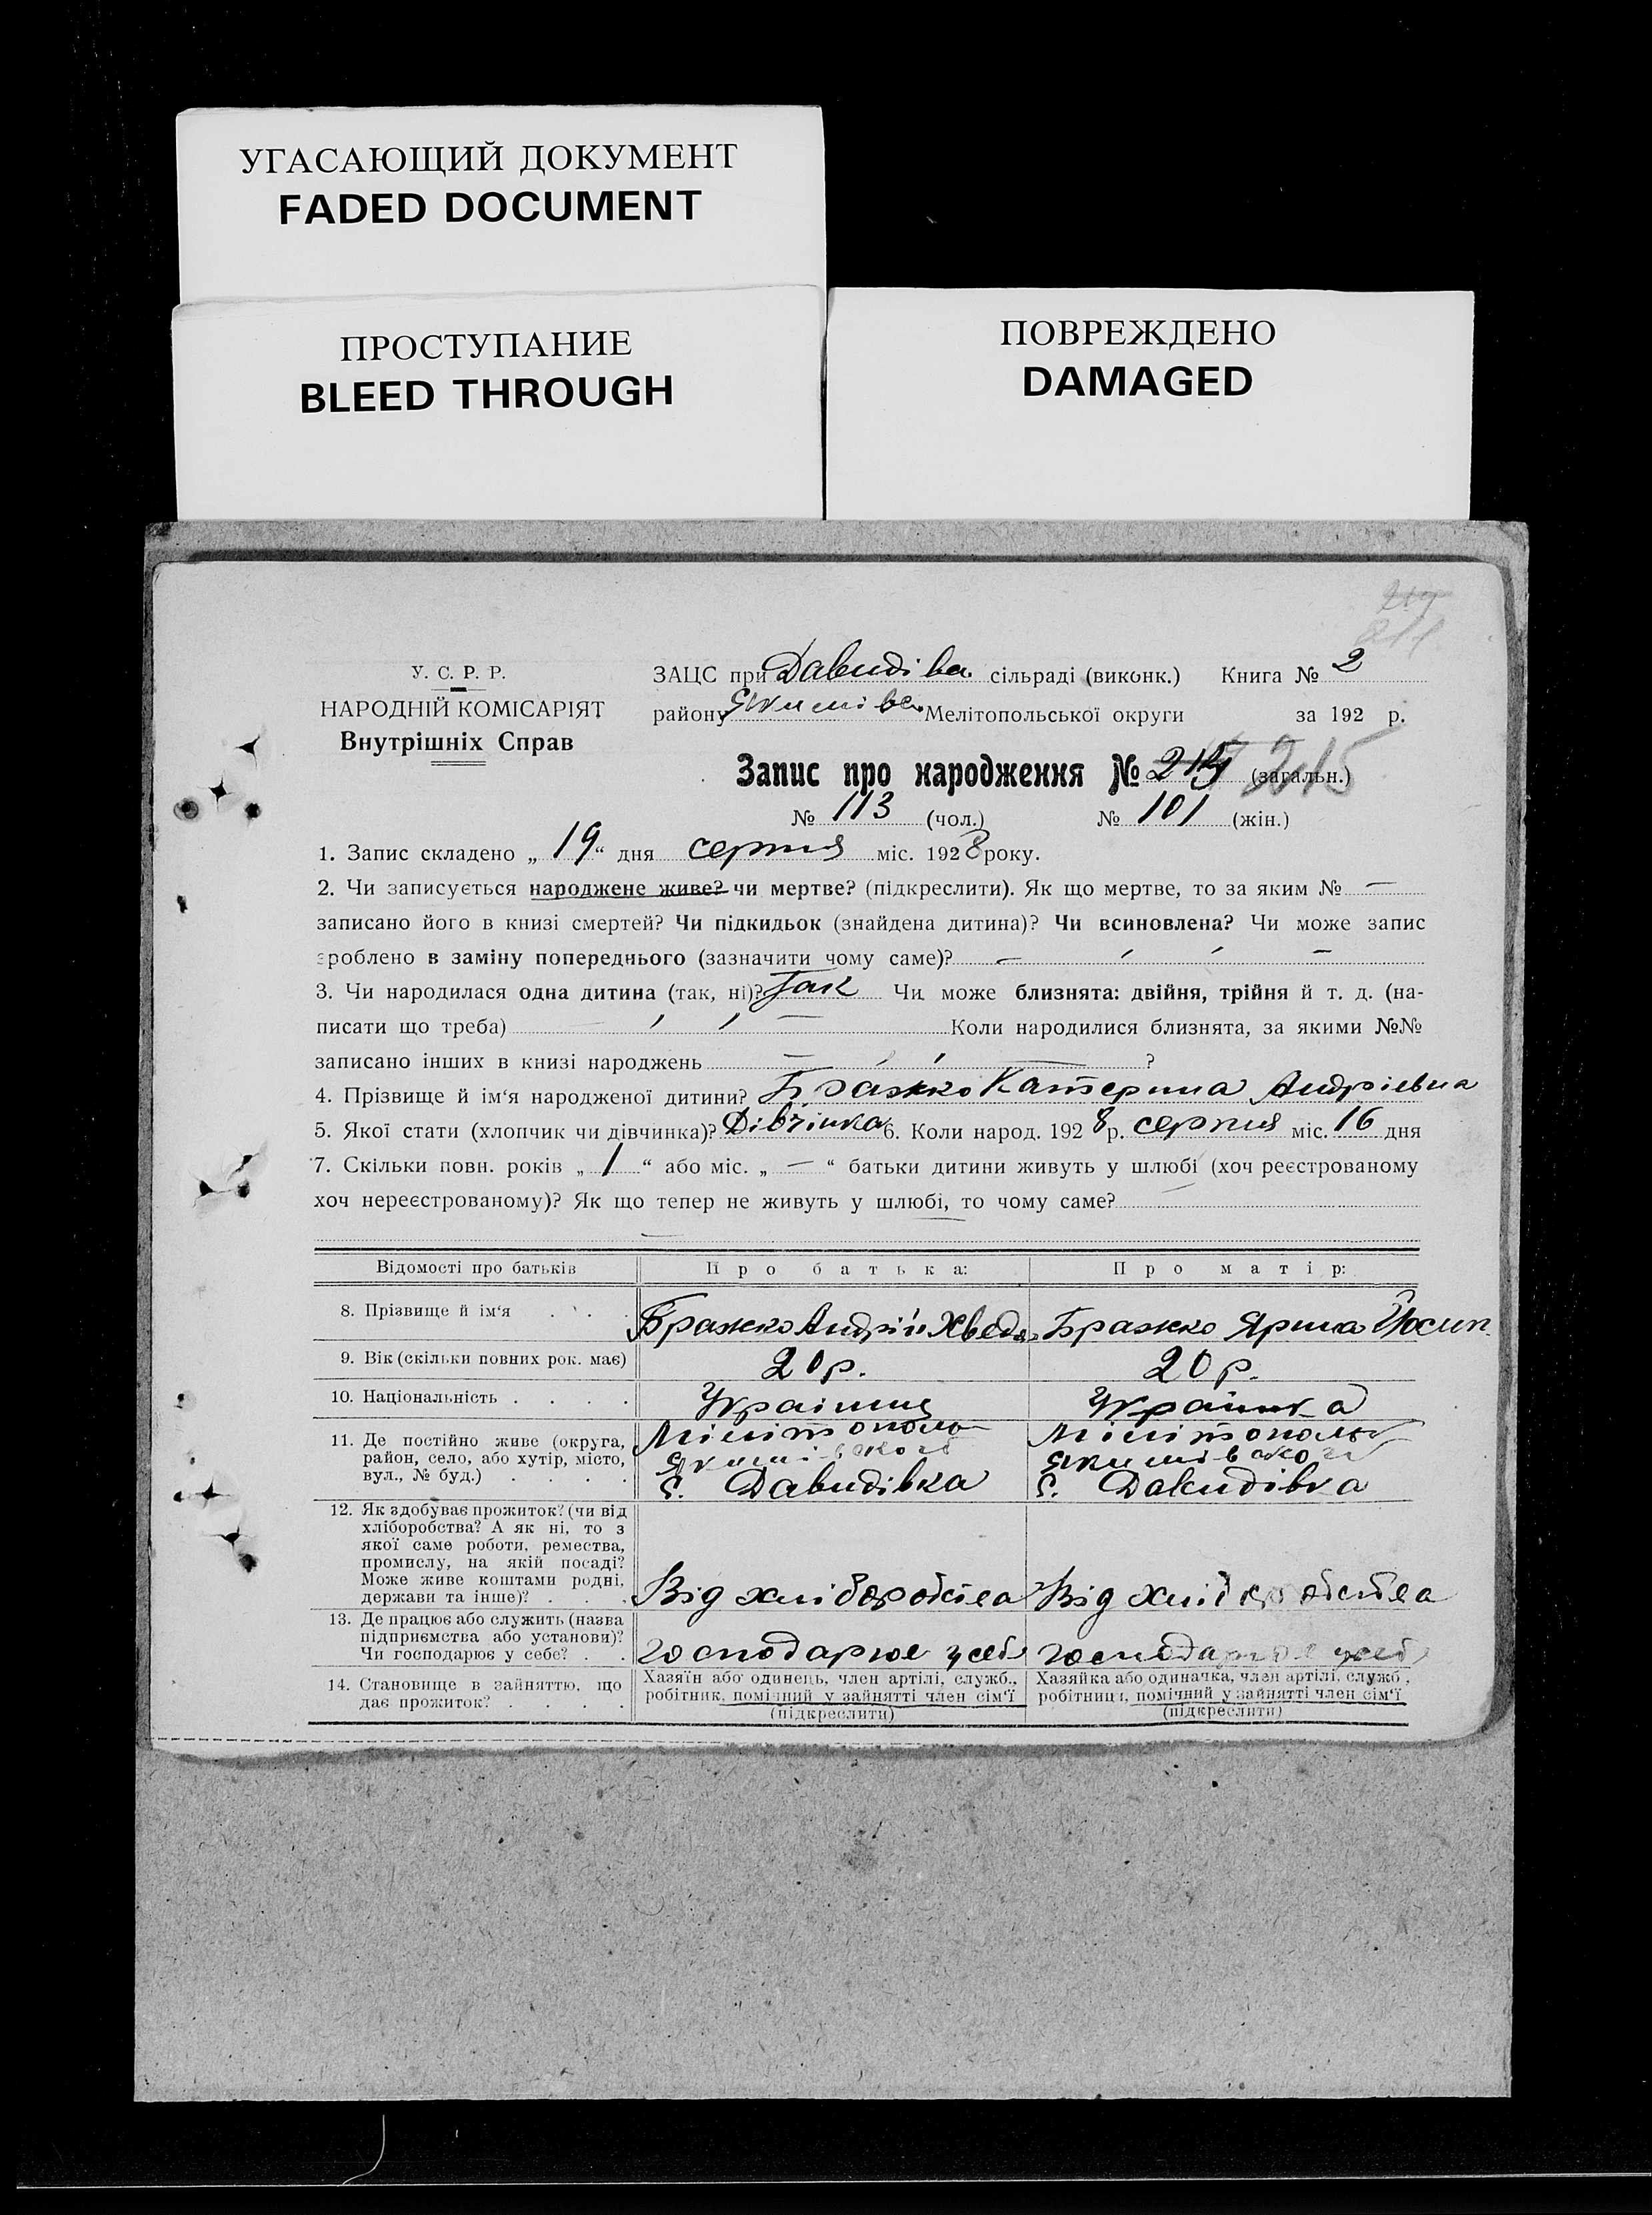 УГАСАЮЩИЙ ДОКУМЕНТ
FADED DOCUMENT
ПРОСТУПАНИЕ
BLEED THROUGH
ПОВРЕЖДЕНО
DAMAGED
У. С. Р. Р.
НАРОДНІЙ КОМІСАРІЯТ
Внутрішніх Справ
ЗАЦС при Давидівс. сільраді (виконк.) Книга № 2
району Якимівс. Мелітопольської округи за 192 р.
Запис про народження № (загальн.) 215
№ 113 (чол.) № 101 (жін.)
1. Запис складено „ 19 “ дня серпня міс. 1928 року.
2. Чи записується народжене живе? чи мертве? (підкреслити). Як що мертве, то за яким № —
записано його в книзі смертей? Чи підкидьок (знайдена дитина)? Чи всиновлена? Чи може запис
зроблено в заміну попереднього (зазначити чому саме)? —
3. Чи народилася одна дитина (так, ні)? Так Чи може близнята: двійня, трійня й т. д. (на-
писати що треба) — Коли народилися близнята, за якими №№
записано інших в книзі народжень — ?
4. Прізвище й ім‘я народженої дитини? Бражко Катерина Андріевна
5. Якої стати (хлопчик чи дівчинка)? Дівчинка 6. Коли народ. 1928 р. серпня міс. 16 дня
7. Скільки повн. років „ 1 “ або міс. „ — “ батьки дитини живуть у шлюбі (хоч реєстрованому
хоч нереєстрованому)? Як що тепер не живуть у шлюбі, то чому саме?
Відомості про батьків Про батька: Про матір:
8. Прізвище й ім‘я . . . Бражко Андрій Хведо. Бражко Ярина Йосип.
9. Вік (скільки повних рок. має) 20 р. 20 р.
10. Національність . . . . Українць Українка
11. Де постійно живе (округа, Мілітополь Мілітопольс
район, село, або хутір, місто, Якимівської Якимівської
вул., № буд.) . . . . с. Давидівка с. Давидівка
12. Як здобуває прожиток? (чи від
хліборобства? А як ні, то з
якої саме роботи, ремества,
промислу, на якій посаді?
Може живе коштами родні,
держави та інше)? . . . Від хліборобства Від хліборобства
13. Де працює або служить (назва
підприємства або установи)?
Чи господарює у себе? . . господарює у себе господарює у себе
14. Становище в зайняттю, що Хазяїн або одинець, член артілі, служб., Хазяйка або одиначка, член артілі, служб.,
дає прожиток? . . . . робітник, помічний у зайнятті член сім‘ї робітниця, помічний у зайнятті член сім‘ї
(підкреслити) (підкреслити)